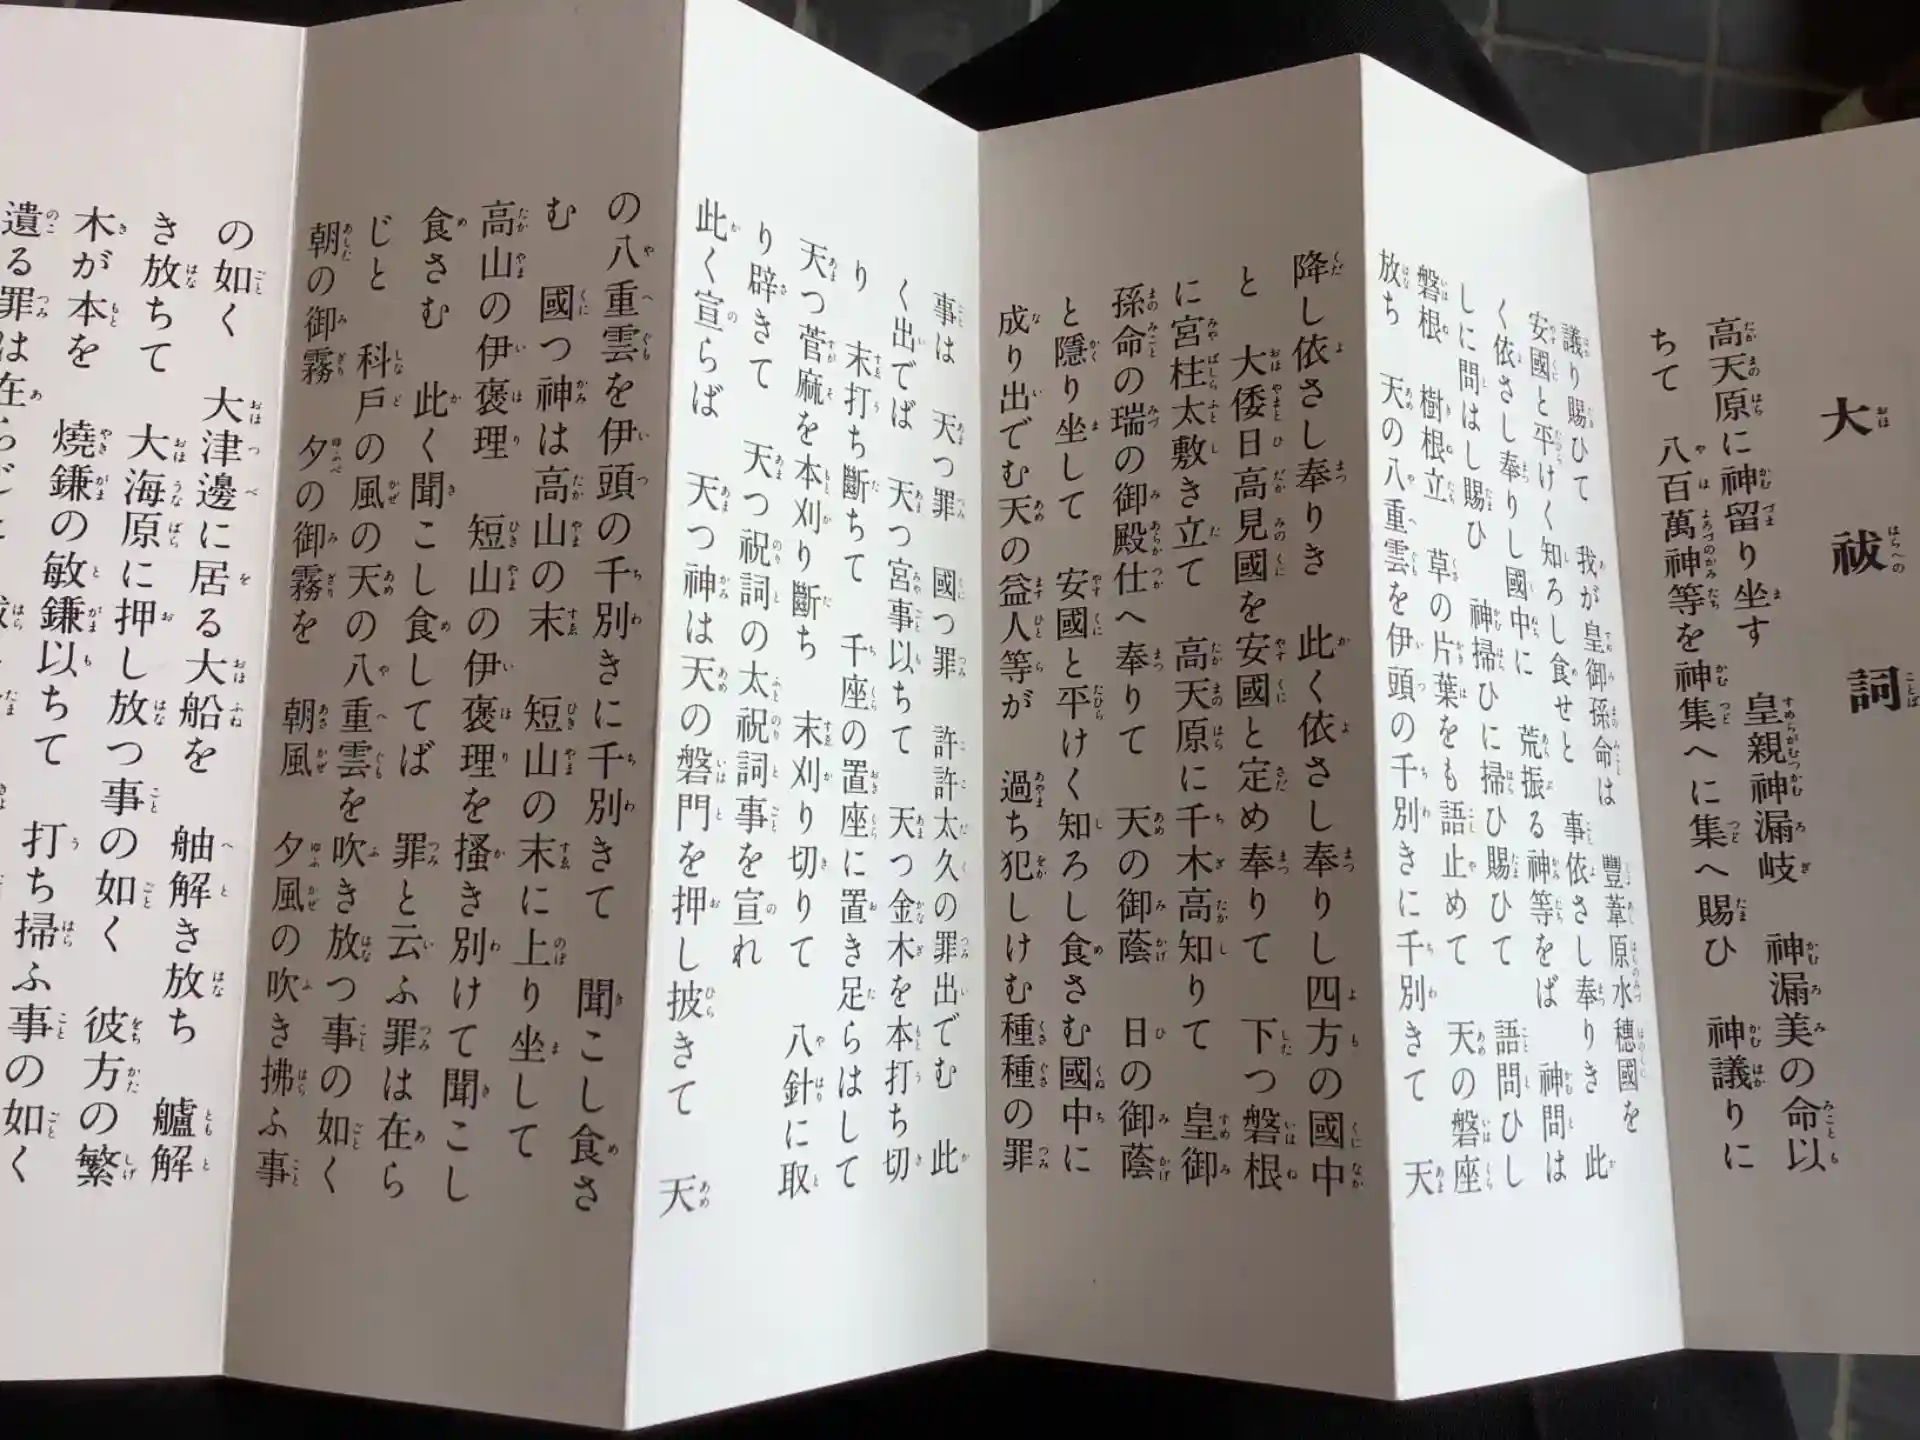 大祓詞
高天原に神留り坐す　皇親神漏岐　神漏美の命以
ちて　八百萬神等を神集へに集へ賜ひ　神議りに
議り賜ひて　我が皇御孫命は　豐葦原水穗國を
安國と平けく知ろし食せと　事依さし奉りき　此
く依さし奉りし國中に　荒振る神等をば　神問は
しに問はし賜ひ　神掃ひに掃ひ賜ひて　語問ひし
磐根　樹根立　草の片葉をも語止めて　天の磐座
放ち　天の八重雲を伊頭の千別きに千別きて　天
降し依さし奉りき　此く依さし奉りし四方の國中
と　大倭日高見國を安國と定め奉りて　下つ磐根
に宮柱太敷き立て　高天原に千木高知りて　皇御
孫命の瑞の御殿仕へ奉りて　天の御蔭　日の御蔭
と隱り坐して　安國と平けく知ろし食さむ國中に
成り出でむ天の益人等が　過ち犯しけむ種種の罪
事は　天つ罪　國つ罪　許許太久の罪出でむ　此
く出でば　天つ宮事以ちて　天つ金木を本打ち切
り　末打ち斷ちて　千座の置座に置き足らはして
天つ菅麻を本刈り斷ち　末刈り切りて　八針に取
り辟きて　天つ祝詞の太祝詞事を宣れ
此く宣らば　天つ神は天の磐門を押し披きて　天
の八重雲を伊頭の千別きに千別きて　聞こし食さ
む　國つ神は高山の末　短山の末に上り坐して
高山の伊褒理　短山の伊褒理を搔き別けて聞こし
食さむ　此く聞こし食してば　罪と云ふ罪は在ら
じと　科戶の風の天の八重雲を吹き放つ事の如く
朝の御霧　夕の御霧を　朝風　夕風の吹き拂ふ事
の如く　大津邊に居る大船を　舳解き放ち　艫解
き放ちて　大海原に押し放つ事の如く　彼方の繁
木が本を　燒鎌の敏鎌以ちて　打ち掃ふ事の如く
遺る罪は在らじと